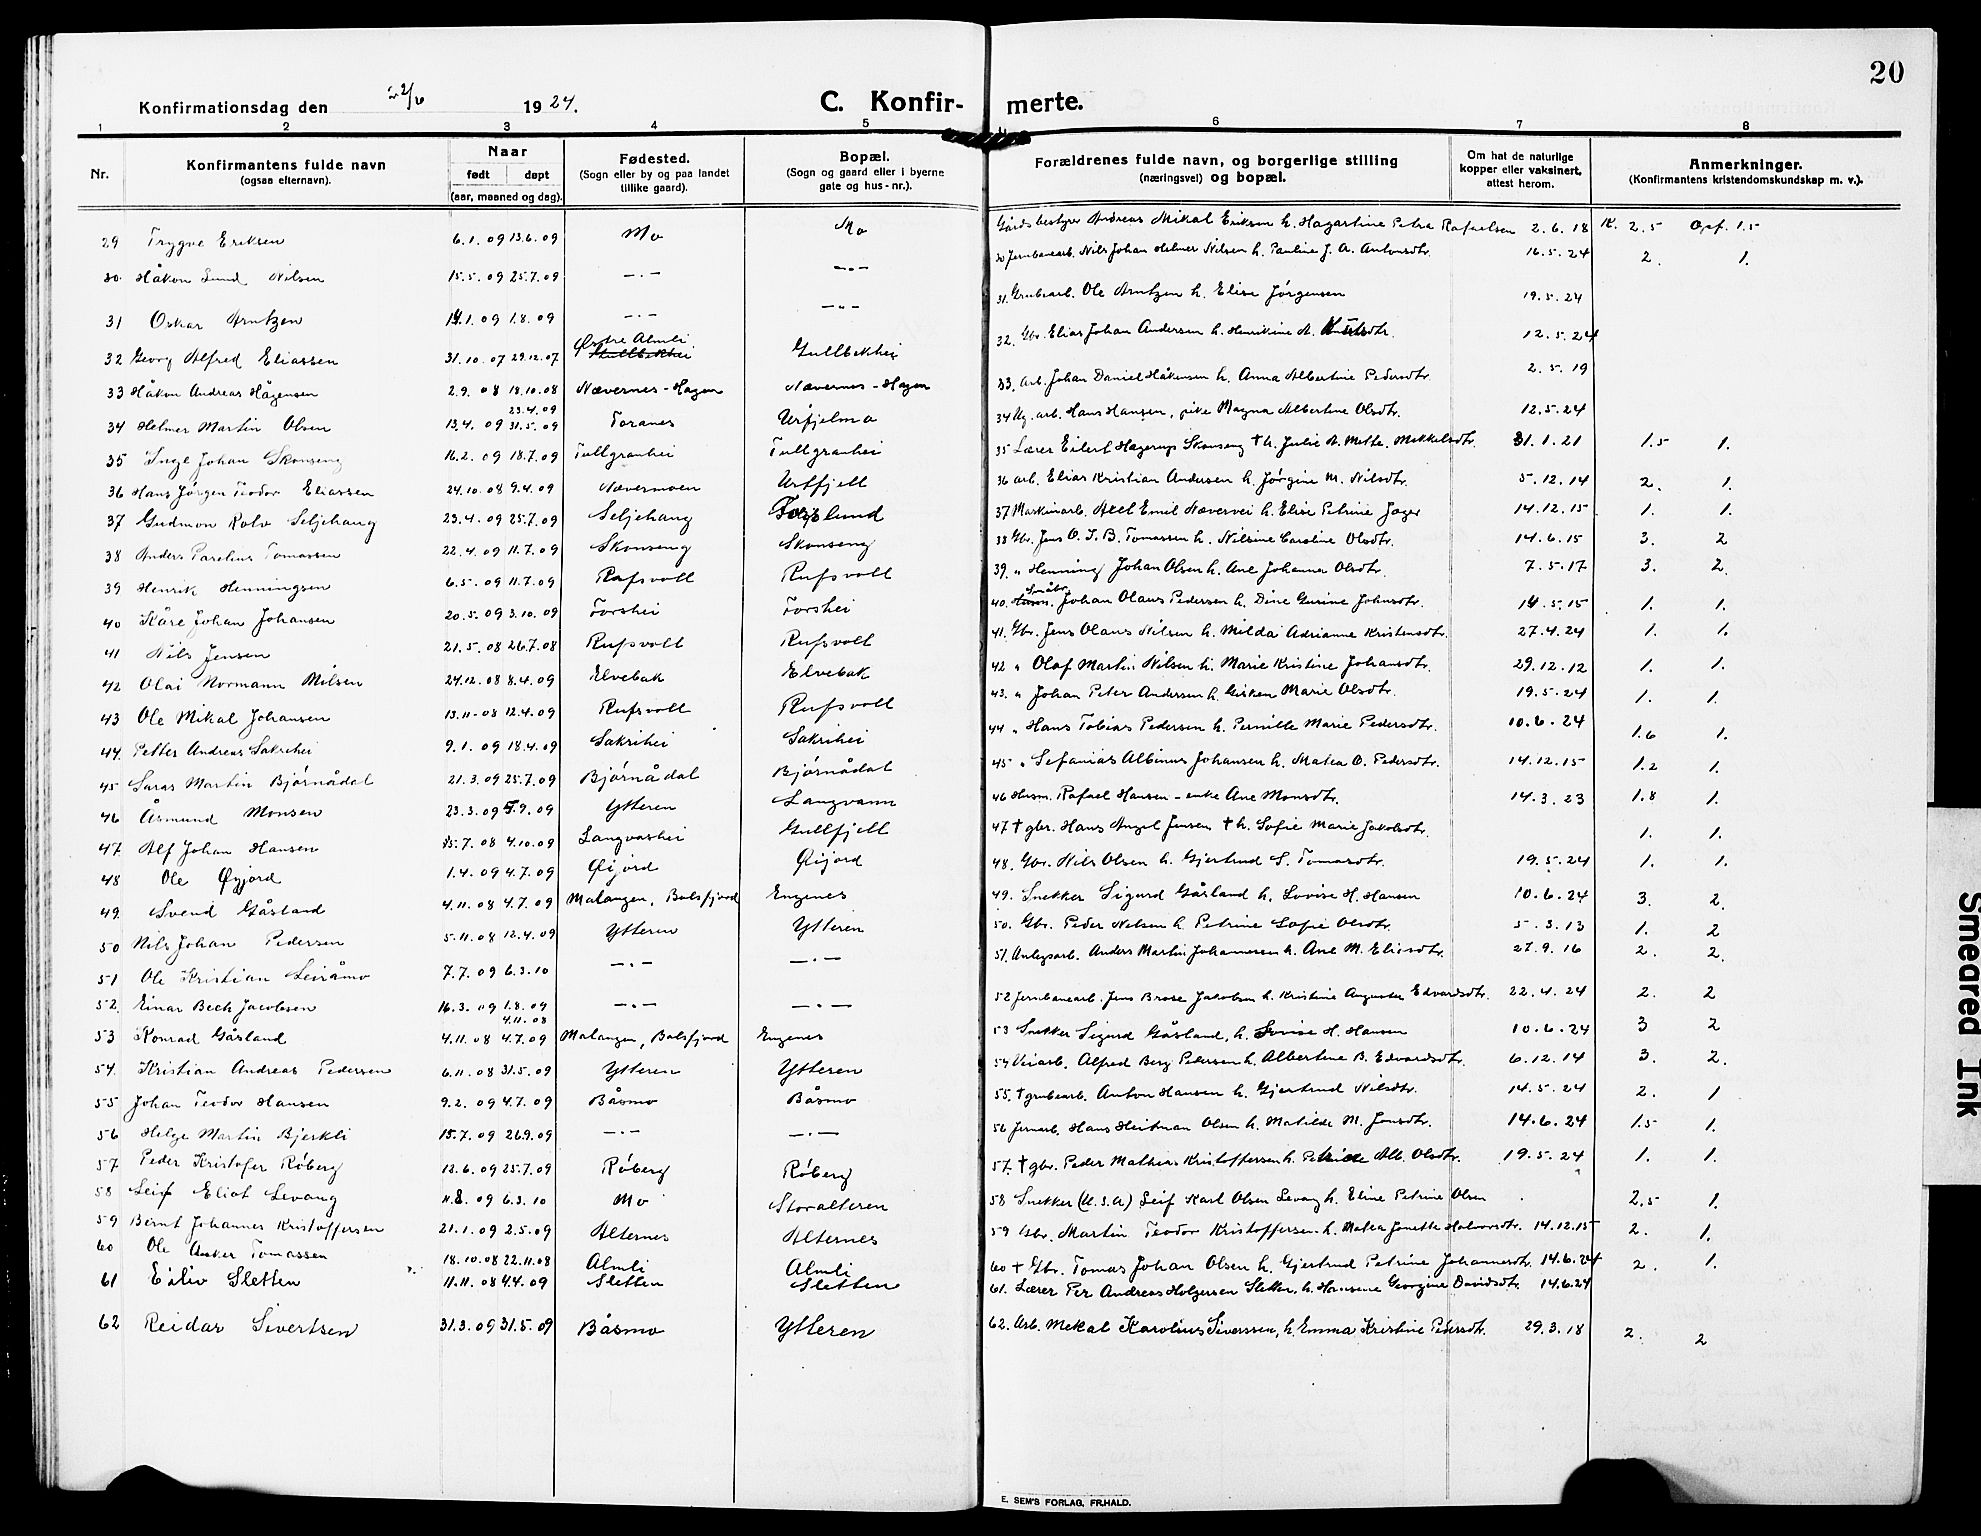 20
Konfirmationsdag den 22/6 1924.
C. Konfirmerte.
1 2 3 4 5 6 7 8
Nr. Konfirmantens fulde navn (ogsaa efternavn). Naar født døpt (aar, maaned og dag). Fødested. (Sogn eller by og paa landet tillike gaard). Bopæl. (Sogn og gaard eller i byerne gate og hus-nr.). Forældrenes fulde navn, og borgerlige stilling (næringsvei) og bopæl. Om hat de naturlige kopper eller vaksinert, attest herom. Anmerkninger. (Konfirmantens kristendomskundskap m. v.).
29 Trygve Eriksen 6.1.09 13.6.09 Mo Mo Gårdsbestyrer Andreas Mikal Eriksen h. Hagartine Petra Rafaelsen 2.6.18 K. 2,5 Opf. 1.5
30 Håkon Lund Nilsen 15.5.09 25.7.09 —〃— —〃— 30 Jernbanearb. Nils Johan Helmer Nilsen h. Pauline J. A. Antonsdtr. 16.5.24 2. 1.
31 Oskar Arntzen 14.1.09 1.8.09 —〃— —〃— 31. Grubearb. Ole Arntzen h. Elise Jørgensen 19.5.24
32 Georg Alfred Eliassen 31.10.07 29.12.07 Østre Almli Gullbekhei 32. Gbr. Elias Johan Andersen h. Henrikine A. 12.5.24
33 Håkon Andreas Hågensen 2.9.08 18.10.08 Nævernes-Hagen Nævernes-Hagen 33. arb. Johan Daniel Håkensen h. Anna Albertine Pedersdtr. 2.5.19
34 Helmer Martin Olsen 13.4.09 23.4.09 31.5.09 Toranes Urfjelmo 34 Ug. arb. Hans Hansen, pike Magna Albertine Olsdtr. 12.5.24
35 Inge Johan Skonseng 16.2.09 18.7.09 Tullgranhei Tullgranhei 35 Lærer Eilert Hagerup Skonseng † h. Julie A. Mette Mikkelsdtr. 31.1.21 1.5 1.
36 Hans Jørgen Teodor Eliassen 24.10.08 9.4.09 Nævermoen Urtfjell 36 arb. Elias Kristian Andersen h. Jørgine M. Nilsdtr. 5.12.14 2. 1.
37 Gudmon Rolv Seljehaug 23.4.09 25.7.09 Seljehaug 37 Maskinarb. Axel Emil Nævervei h. Elise Petrine Jæger 14.12.15 1. 1.
38 Anders Parelius Tomassen 22.4.09 11.7.09 Skonseng Skonseng 38 Gbr. Jens O. J. B. Tomassen h. Nilsine Caroline Olsdtr. 14.6.15 3. 2
39 Henrik Henningsen 6.5.09 11.7.09 Rufsvoll Rufsvoll 39. 〃 Henning Johan Olsen h. Ane Johanna Olsdtr. 7.5.17 3. 2.
40 Kåre Johan Johansen 20.5.09 3.10.09 Forshei Forshei 40. Småbr. Johan Olaus Pedersen h. Dine Gurine Johnsdtr. 14.5.15 1. 1.
41 Nils Jensen 21.5.08 26.7.08 Rufsvoll Rufsvoll 41. Gbr. Jens Olaus Nilsen h. Milda Adrianne Kristensdtr. 27.4.24 1. 1.
42 Olai Normann Nilsen 24.12.08 8.4.09 Elvebak Elvebak 42 〃 Olaf Martin Nilsen h. Marie Kristine Johansdtr. 29.12.12 1. 1.
43 Ole Mikal Johansen 13.11.08 12.4.09 Rufsvoll Rufsvoll 43. 〃 Johan Peter Andersen h. Gisken Marie Olsdtr. 19.5.24 1. 1.
44. Petter Andreas Sakrihei 9.1.09 18.4.09 Sakrihei Sakrihei 44 〃 Hans Tobias Pedersen h. Pernille Marie Pedersdtr. 10.6.24 1.6 1.
45 Saras Martin Bjørnådal 21.3.09 25.7.09 Bjørnådal Bjørnådal 45 〃 Sefanias Albinus Johansen h. Matea O. Pedersdtr. 14.12.15 1.2 1.
46 Åsmund Monsen 23.3.09 5.9.09 Ytteren Langvann 46 Husm. Rafael Hansen - enke Ane Monsdtr. 14.3.23 1.8 1.
47. Alf Johan Hansen 15.7.08 4.10.09 Langvashei Gullfjell 47 † gbr. Hans Angel Jensen † h. Sofie Marie Jakobsdtr. 1. 1.
48 Ole Øyjord 1.4.09 4.7.09 Øijord Øijord 48. Gbr. Nils Olsen h. Gjertrud S. Tomasdtr. 19.5.24 1. 1.
49. Svend Gåsland 4.11.08 4.7.09 Malangen, Balsfjord Engenes 49. Snekker Sigurd Gåsland h. Lovise H. Hansen 10.6.24 3. 2.
50 Nils Johan Pedersen 5.11.08 12.4.09 Ytteren Ytteren 50. Gbr. Peder Nilsen h. Petrine Sofie Olsdtr. 5.3.13 1. 2
51 Ole Kristian Leiråmo 7.7.09 6.3.10 —〃— —〃— 51. Anlegsarb. Anders Martin Johannessen h. Ane M. Eliasdtr. 27.9.16 2. 2.
52. Einar Bech Jacobsen 16.3.09 1.8.09 —〃— —〃— 52 Jernbanearb. Jens Brose Jakobsen h. Kristine Augusta Edvardsdtr. 22.4.24 2. 2
53 Konrad Gåsland 4.11.08 4.11.08 4.7.09 Malangen, Balsfjord Engenes 53 Snekker Sigurd Gåsland, h. Lovise H. Hansen 10.6.24 3 2
54. Kristian Andreas Pedersen 6.11.08 31.5.09 Ytteren Ytteren 54 Veiarb. Alfred Berg Pedersen h. Albertine B. Edvardsdtr. 6.12.14 3. 2.
55 Johan Teodor Hansen 9.2.09 4.7.09 Båsmo Båsmo 55. † grubearb. Anton Hansen h. Gjertrud Nilsdtr. 14.5.24 2. 1
56 Helge Martin Bjerkli 15.7.09 26.9.09 —〃— —〃— 56 Jernarb. Hans Heitman Olsen h. Matilde M. Jonsdtr. 14.6.24 1.5 1.
57 Peder Kristofer Røberg 12.6.09 25.7.09 Røberg Røberg 57. † gbr. Peder Mathias Kristoffersen h. Alb. Olsdtr. 19.5.24 1. 1.
58 Leif Eliot Levang 11.8.09 6.3.10 Mo Storalteren 58 Snekker (U.S.A) Leif Karl Olsen Levang h. Eline Petrine Olsen 2.5 1.
59 Bernt Johannes Kristoffersen 21.1.09 2.5.09 Alternes Alternes 59 Gbr. Martin Teodor Kristoffersen h. Matea Jonette Halvorsdtr. 14.12.15 2. 1.
60 Ole Anker Tomassen 18.10.08 22.11.08 Almli Almli 60 † Gbr. Tomas Johan Olsen h. Gjertrud Petrine Johannesdtr. 14.6.24 2. 1.
61 Eiliv Sletten 11.11.08 4.4.09 Sletten Sletten 61. Lærer Per Andreas Holgersen Sletten, h. Hansine Georgine Davidsdtr. 14.6.24
62 Reidar Sivertsen 31.3.09 31.5.09 Båsmo Ytteren 62. Arb. Mekal Karolius Siverssen, h. Emma Kristine Pedersdtr. 29.3.18 2. 2
E. SEM'S FORLAG, FR.HALD.
Smeared Ink